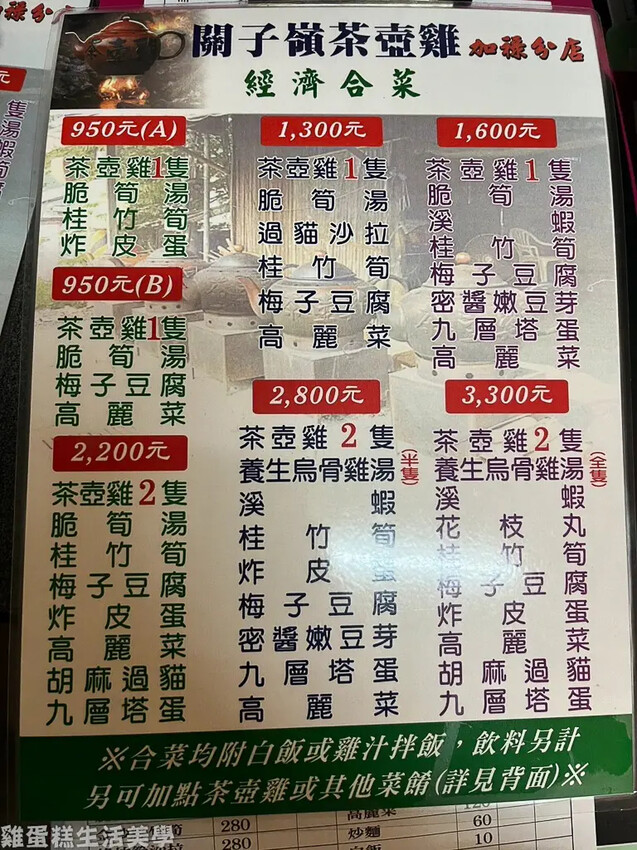 關子嶺茶壺雞 加祿分店
經濟合菜
950元(A)
茶壺雞1隻
脆筍湯
桂竹筍
炸皮蛋
950元(B)
茶壺雞1隻
脆筍湯
梅子豆腐
高麗菜
2,200元
茶壺雞2隻
脆筍湯
桂竹筍
梅子豆腐
炸皮蛋
高麗菜
胡麻過貓
九層塔蛋
1,300元
茶壺雞1隻
脆筍湯
過貓沙拉
桂竹筍
梅子豆腐
高麗菜
2,800元
茶壺雞2隻
養生烏骨雞湯(半隻)
溪蝦
桂竹筍
炸皮蛋
梅子豆腐
密醬嫩豆芽
九層塔蛋
高麗菜
1,600元
茶壺雞1隻
脆筍湯
溪蝦
桂竹筍
梅子豆腐
密醬嫩豆芽
九層塔蛋
高麗菜
3,300元
茶壺雞2隻
養生烏骨雞湯(全隻)
溪蝦
花枝丸
桂竹筍
梅子豆腐
炸皮蛋
高麗菜
胡麻過貓
九層塔蛋
※合菜均附白飯或雞汁拌飯，飲料另計
另可加點茶壺雞或其他菜餚(詳見背面)※
280
高麗菜
120
280
炒麵
60
白飯
10
雞蛋糕生活美學